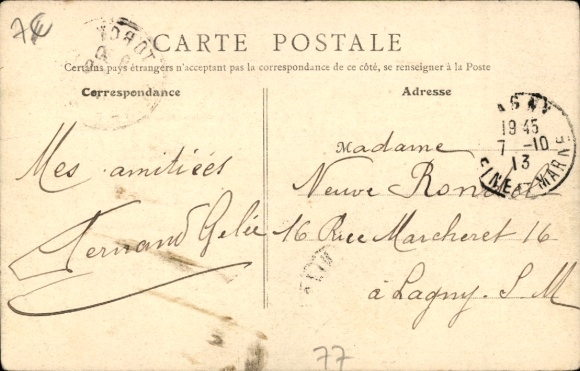 7€
CARTE POSTALE
Certains pays étrangers n'acceptant pas la correspondance de ce côté, se renseigner à la Poste
Correspondance
Adresse
LAGNY
19 45
7 -10
13
SINE ET MARNE
Mes amitiées
Fernand Gelée
Madame
Neuve
16 Rue Marcheret 16
à Lagny. S. M
77